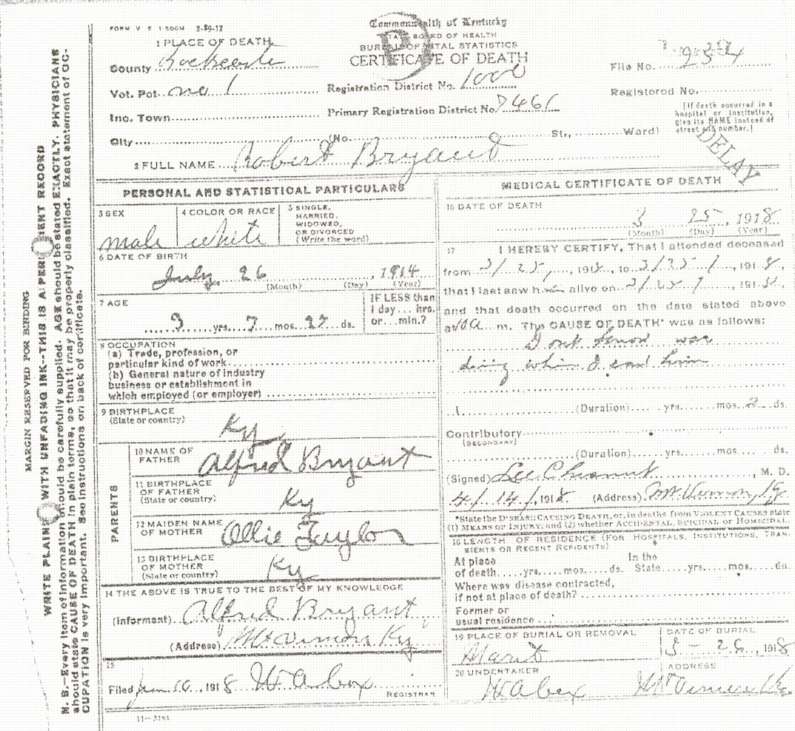 FORM V S 1 500M 7-29-17
Commonwealth of Kentucky
STATE BOARD OF HEALTH
BUREAU OF VITAL STATISTICS
CERTIFICATE OF DEATH
1 PLACE OF DEATH
County Rockcastle
Vot. Pct. no 1
Inc. Town
City (No. St., Ward)
Registration District No. 1000
Primary Registration District No. 7461
File No.
Registered No.
[If death occurred in a hospital or institution, give its NAME instead of street and number.]
DELAY
2 FULL NAME Robert Bryant
PERSONAL AND STATISTICAL PARTICULARS
3 SEX male
4 COLOR OR RACE white
5 SINGLE, MARRIED, WIDOWED, OR DIVORCED (Write the word)
6 DATE OF BIRTH
July 26, 1914
(Month) (Day) (Year)
7 AGE
3 yrs. 7 mos. 27 ds.
IF LESS than 1 day... hrs. or... min.?
8 OCCUPATION
(a) Trade, profession, or particular kind of work
(b) General nature of industry business or establishment in which employed (or employer)
9 BIRTHPLACE
(State or country) Ky
PARENTS
10 NAME OF FATHER Alfred Bryant
11 BIRTHPLACE OF FATHER (State or country) Ky
12 MAIDEN NAME OF MOTHER Ollie Taylor
13 BIRTHPLACE OF MOTHER (State or country) Ky
14 THE ABOVE IS TRUE TO THE BEST OF MY KNOWLEDGE
(Informant) Alfred Bryant
(Address) Mt Vernon Ky
15
Filed Jun 10, 1918 W. A. Cox REGISTRAR
11-3184
MEDICAL CERTIFICATE OF DEATH
16 DATE OF DEATH
3 25, 1918
(Month) (Day) (Year)
17 I HEREBY CERTIFY, That I attended deceased
from 3/25, 1918, to 3/25, 1918,
that I last saw h alive on 3/25, 1918,
and that death occurred on the date stated above
at 10 a m. The CAUSE OF DEATH* was as follows:
Dont know was
dying when I saw him
(Duration) yrs. mos. 2 ds.
Contributory
(SECONDARY)
(Duration) yrs. mos. ds.
(Signed) Lee Chesnut, M. D.
4/14, 1918 (Address) Mt Vernon, Ky
*State the DISEASE CAUSING DEATH, or, in deaths from VIOLENT CAUSES state (1) MEANS OF INJURY, and (2) whether ACCIDENTAL, SUICIDAL or HOMICIDAL.
18 LENGTH OF RESIDENCE (FOR HOSPITALS, INSTITUTIONS, TRANSIENTS OR RECENT RESIDENTS)
At place of death yrs. mos. ds. In the State yrs. mos. ds.
Where was disease contracted, if not at place of death?
Former or usual residence
19 PLACE OF BURIAL OR REMOVAL
DATE OF BURIAL
3-26, 1918
20 UNDERTAKER
W A Cox
ADDRESS
Mt Vernon Ky
MARGIN RESERVED FOR BINDING
WRITE PLAINLY WITH UNFADING INK--THIS IS A PERMANENT RECORD
N. B.--Every item of information should be carefully supplied. AGE should be stated EXACTLY. PHYSICIANS
should state CAUSE OF DEATH in plain terms, so that it may be properly classified. Exact statement of OC-
CUPATION is very important. See instructions on back of certificate.